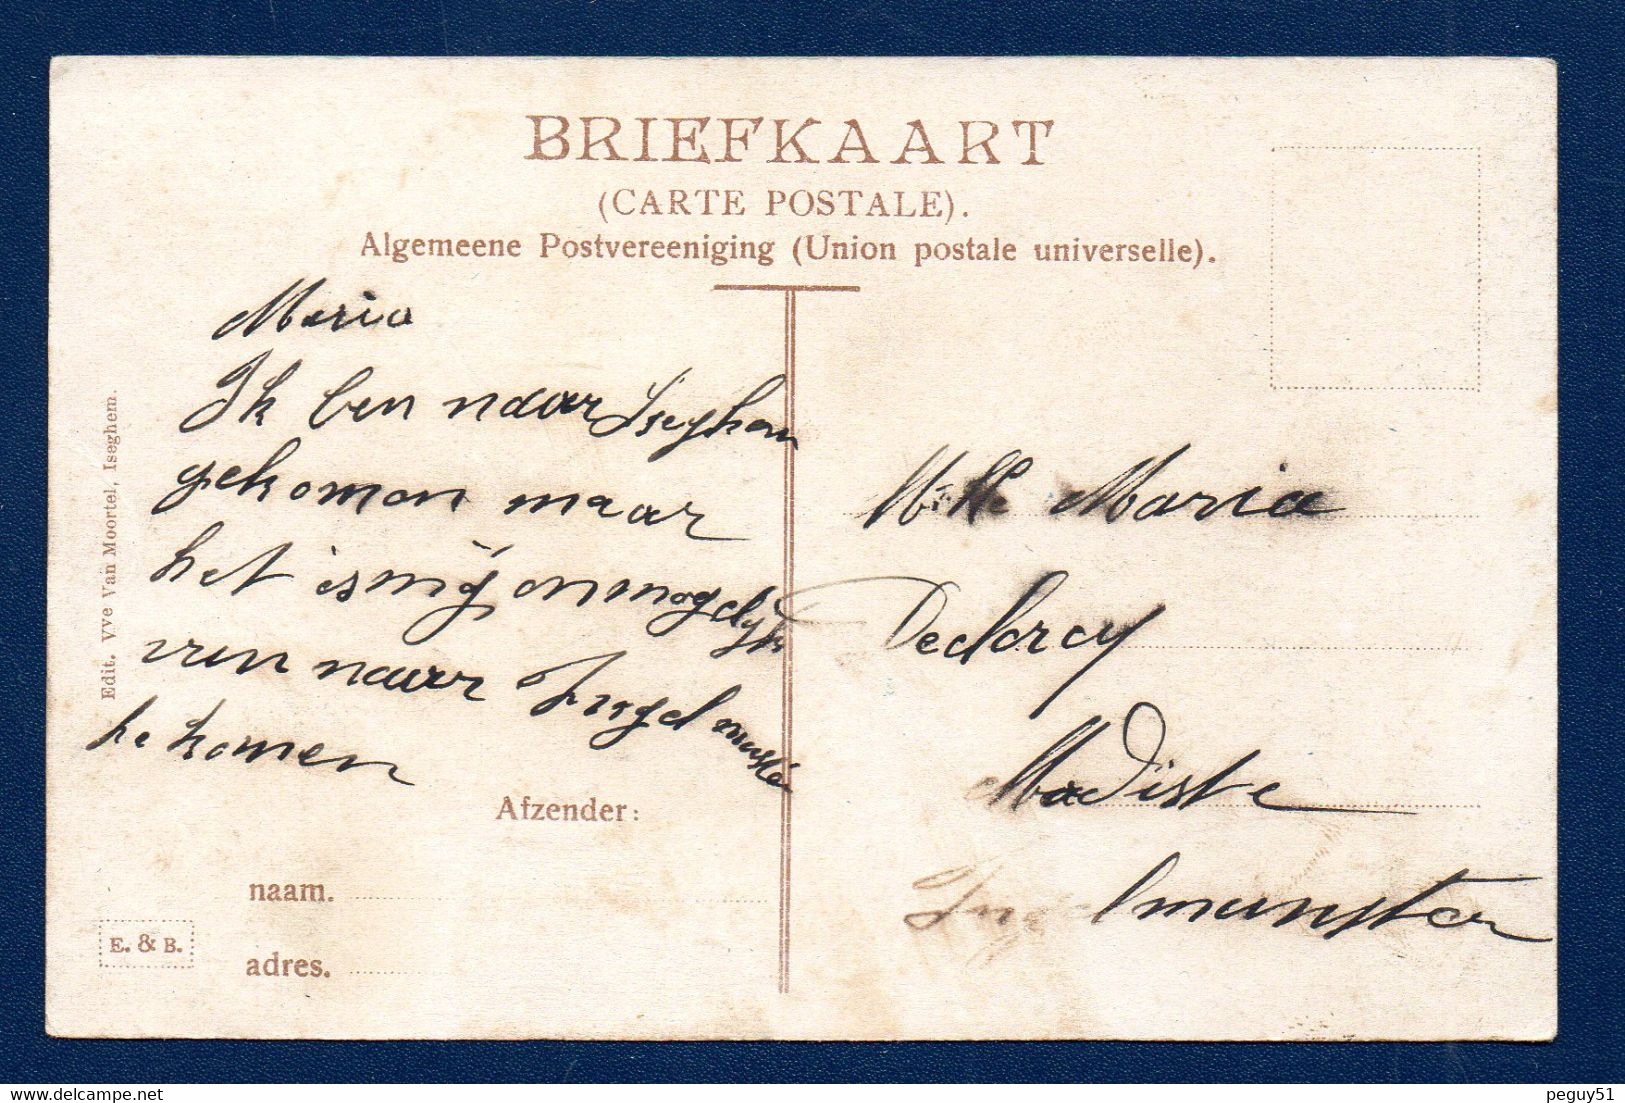 BRIEFKAART
(CARTE POSTALE).
Algemeene Postvereeniging (Union postale universelle).
Maria
Ik ben naar Iseghem
gekomen maar
het is mij onmogelijk
van naar Ingelmunster
te komen
Edit. Vve Van Moortel, Iseghem.
Afzender:
naam.
adres.
E. & B.
Mlle Maria
Declercq
Modiste
Ingelmunster
peguy51